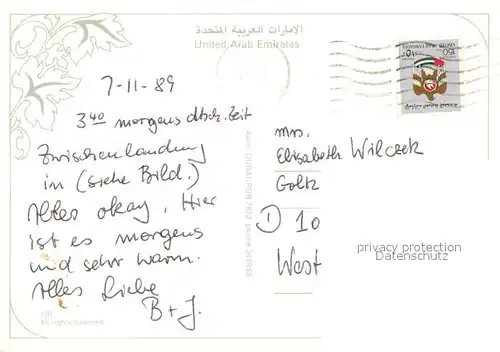 الإمارات العربية المتحدة
United Arab Emirates
7-11-89
3⁴⁰ morgens dtsch. Zeit
Zwischenlandung
in (siehe Bild.)
Alles okay. Hier
ist es morgens
und sehr warm.
Alles Liebe
B + J.
Mrs.
Elisabeth Wilczek
Goltz
D 10
West
150
UNITED ARAB EMIRATES
privacy protection
Datenschutz
All rights reserved.